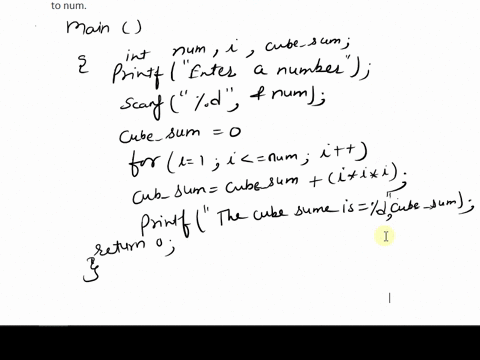 to num.
Main ()
{ int num, i, cube_sum;
Printf ("Enter a number");
Scanf ("%d", &num);
Cube_sum = 0
for (i=1; i<=num; i++)
Cub_sum = Cube_sum + (i*i*i);
Printf (" The cube sume is = %d", cube_sum);
return 0;
}